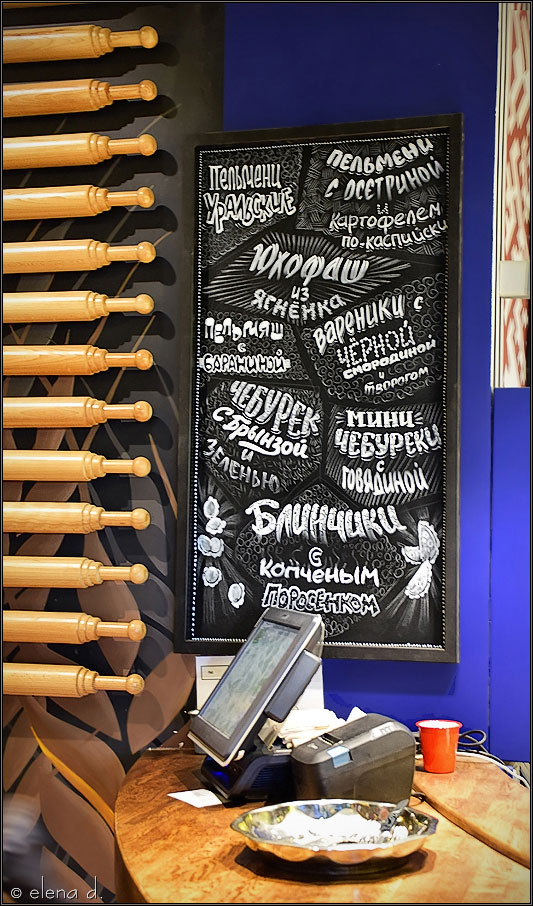 Пельмени
Уральские
Пельмени
с осетриной
и
картофелем
по-каспийски
Юхофаш
из
ягнёнка
Пельмяш
с
бараниной
Вареники с
чёрной
смородиной
и
творогом
Чебурек
с брынзой
и
зеленью
Мини
чебуреки
с
говядиной
Блинчики
с
копченым
поросенком
© elena d.